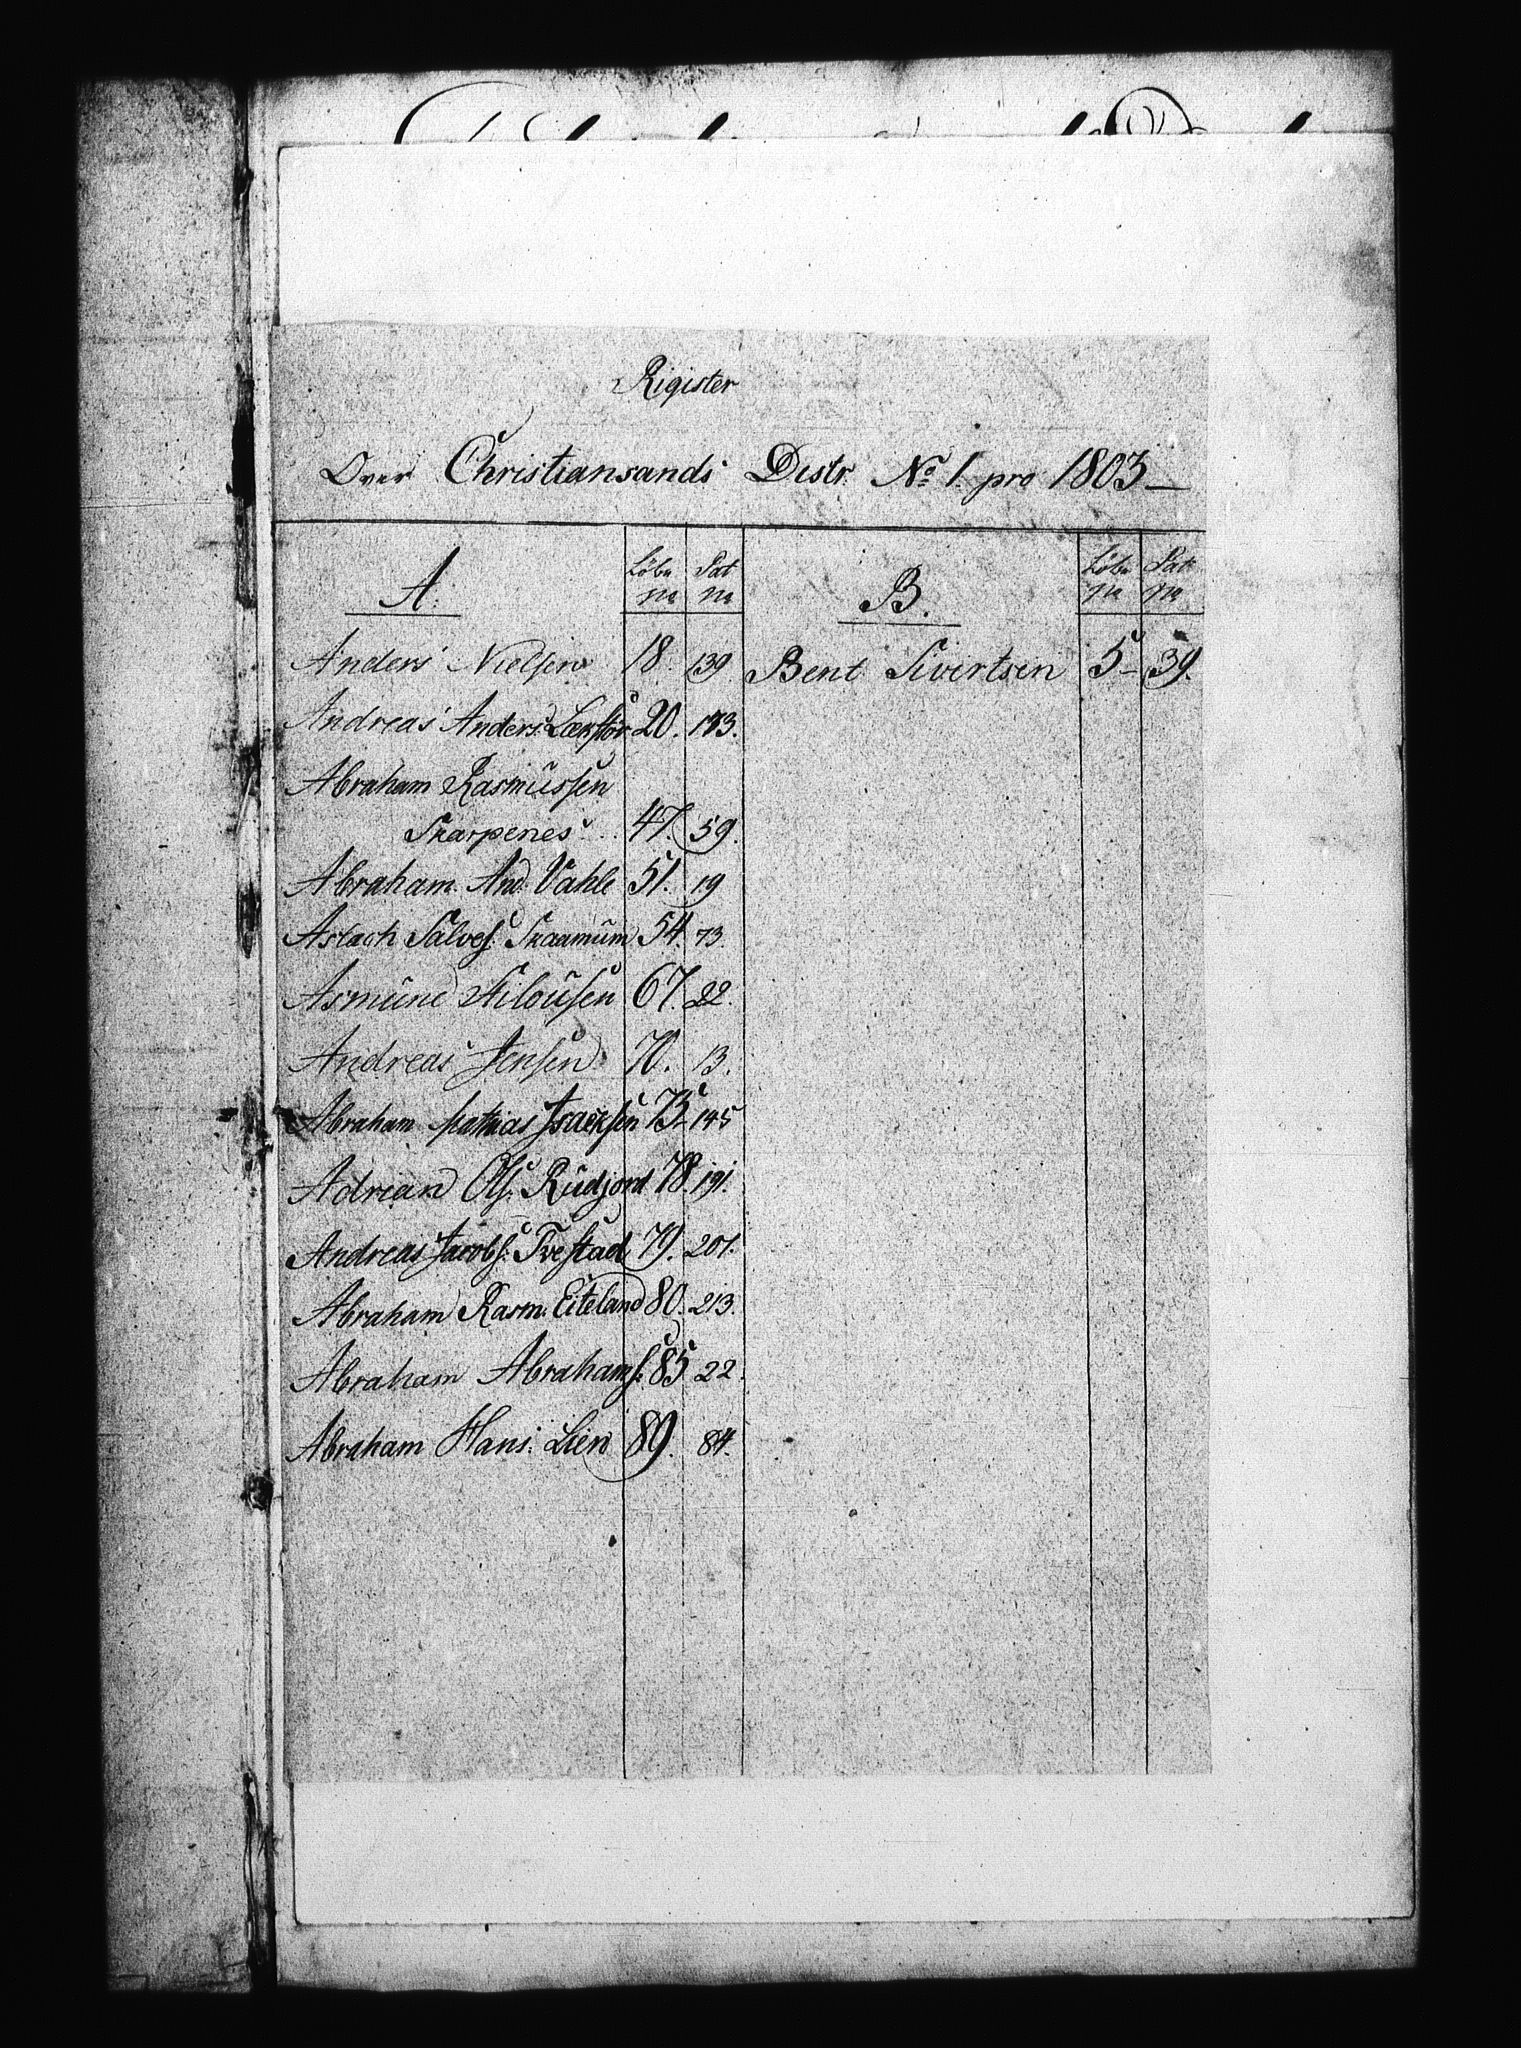 Rigister
Over Christiansands Distr. No 1. pro 1803
A. Löbe Pat B. Löbe Pat
No No No No
Anders Nielsen 18. 139. Bent Sivertsen 5 39.
Andreas Anders. 20. 173.
Abraham Rasmussen
Skarpenes 47. 59.
Abraham And. Vahle 51. 19
Aslach Salves. 54. 73.
Asmund 67. 22.
Andreas Jensen 70. 13.
Abraham Mathias Isachsen 75 145
Adrian Ols. Rudjord 78. 191.
Andreas Jacobs. Tvestad 79. 201.
Abraham Rasm. Eiteland 80. 213.
Abraham Abrahams. 85 22.
Abraham Hans. Lien 89. 84.